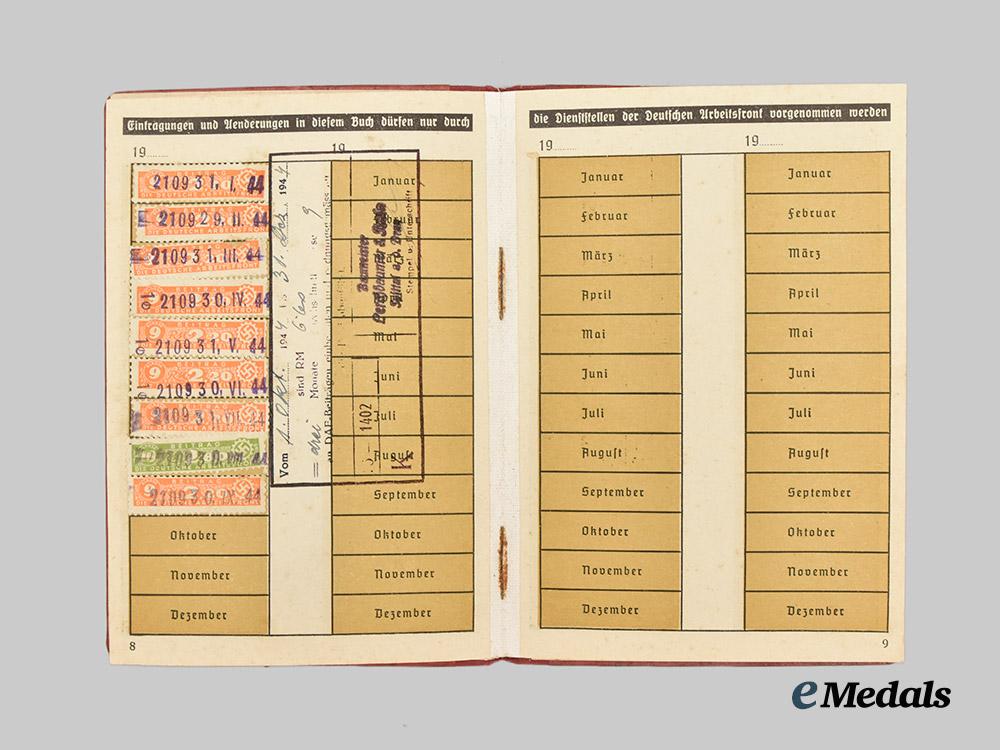 Eintragungen und Aenderungen in diesem Buch dürfen nur durch
19
19
2109 31. I. 44
DIE DEUTSCHE ARBEITSFRONT
2109 29. II. 44
DIE DEUTSCHE ARBEITSFRONT
2109 31. III. 44
DIE DEUTSCHE ARBEITSFRONT
2109 30. IV. 44
BEITRAG
2109 31. V. 44
BEITRAG
9 2 20
2109 30. VI. 44
2109 31.
BEITRAG
2109 30. IX. 44
Oktober
November
Dezember
Januar
Mai
Juni
Juli
August
September
Oktober
November
Dezember
Vom 1. Okt. 1944 bis 31. Dez. 1944
sind RM
= drei Monate
an DAF-Beiträgen
Baumeister
Stempel u. Unterschrift
1402
K
8
die Dienststellen der Deutschen Arbeitsfront vorgenommen werden
19
19
Januar
Februar
März
April
Mai
Juni
Juli
August
September
Oktober
November
Dezember
Januar
Februar
März
April
Mai
Juni
Juli
August
September
Oktober
November
Dezember
9
eMedals